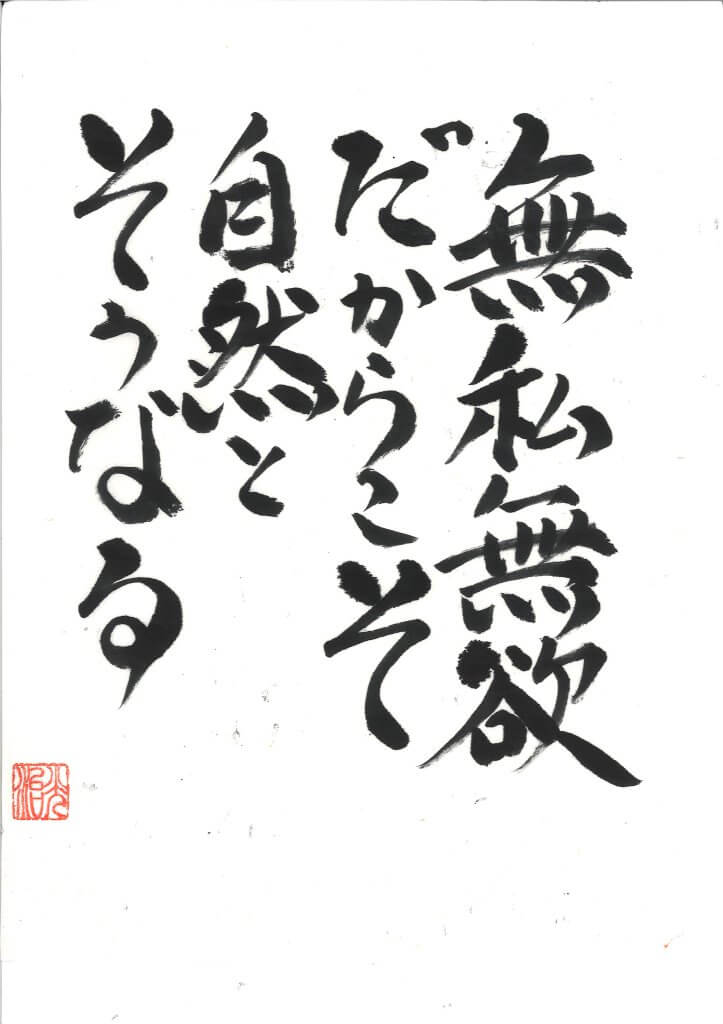 無私無欲
だからこそ
自然と
そうなる